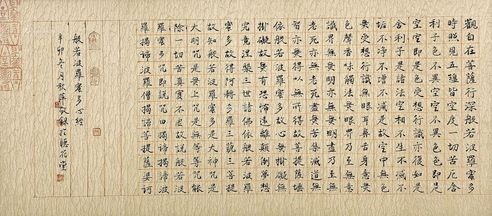 觀自在菩薩行深般若波羅蜜多
時照見五蘊皆空度一切苦厄舍
利子色不異空空不異色色即是
空空即是色受想行識亦復如是
舍利子是諸法空相不生不滅不
垢不淨不增不減是故空中無色
無受想行識無眼耳鼻舌身意無
色聲香味觸法無眼界乃至無意
識界無無明亦無無明盡乃至無
老死亦無老死盡無苦集滅道無
智亦無得以無所得故菩提薩埵
依般若波羅蜜多故心無掛礙無
掛礙故無有恐怖遠離顛倒夢想
究竟涅槃三世諸佛依般若波羅
蜜多故得阿耨多羅三藐三菩提
故知般若波羅蜜多是大神咒是
大明咒是無上咒是無等等咒能
除一切苦真實不虛故說般若波
羅蜜多咒即說咒曰揭諦揭諦波
羅揭諦波羅僧揭諦菩提薩婆訶
般若波羅蜜多心經
辛卯冬月秋萍敬錄於聽花堂